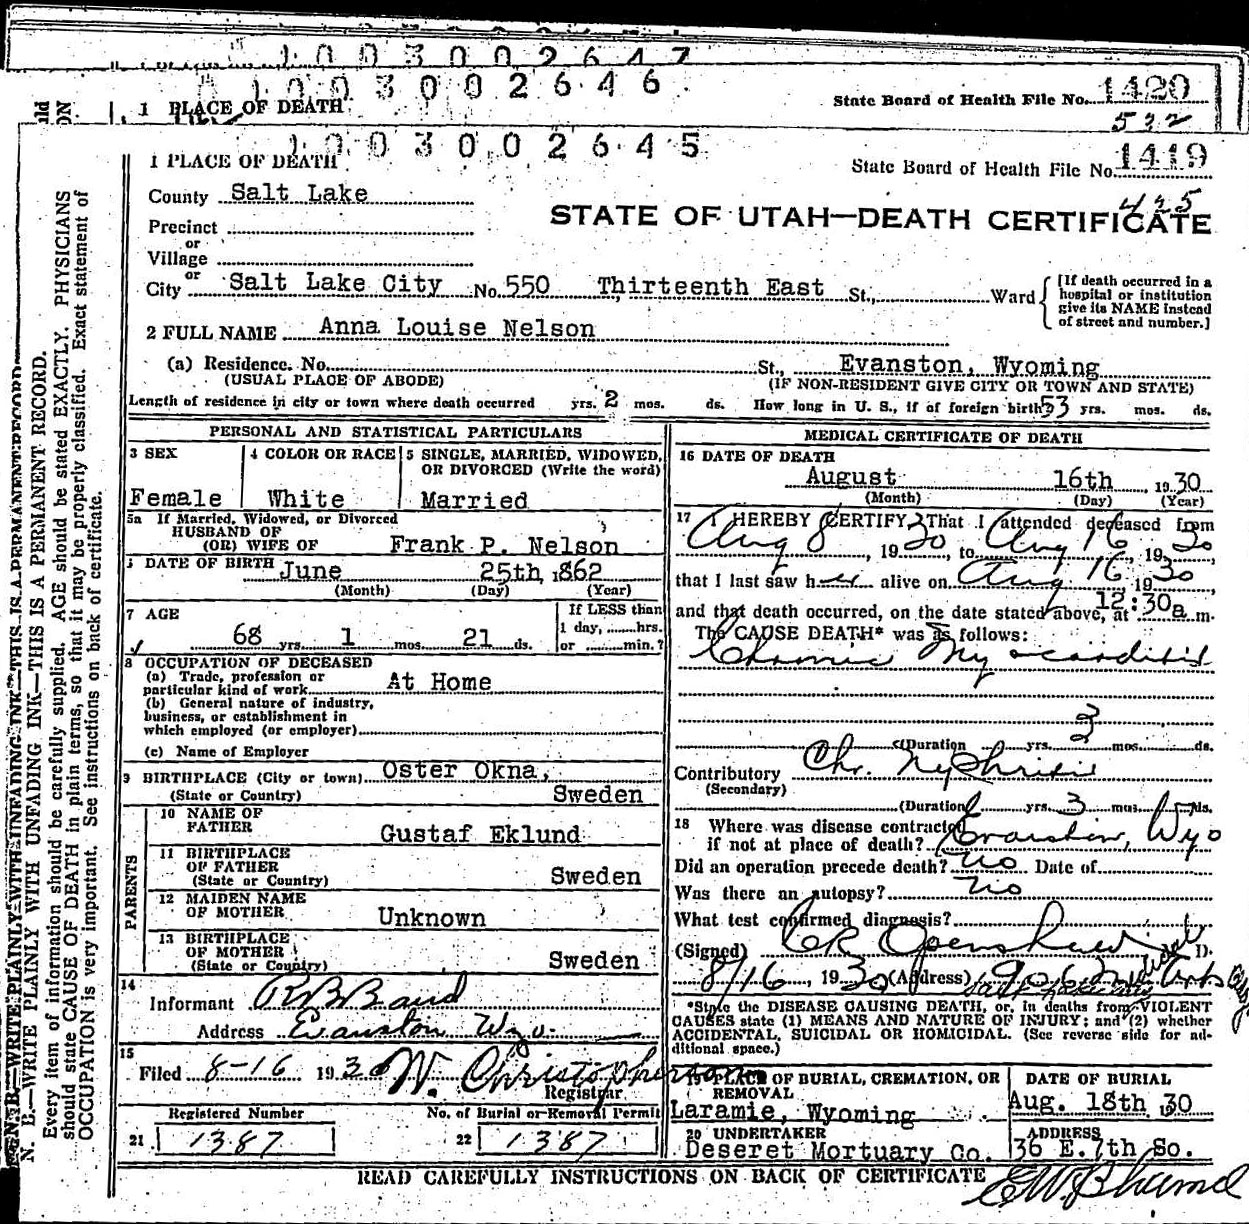 1 0 0 3 0 0 2 6 4 7
1 0 0 3 0 0 2 6 4 6
1 PLACE OF DEATH
State Board of Health File No. 1420
532
1 0 0 3 0 0 2 6 4 5
1 PLACE OF DEATH
State Board of Health File No. 1419
425
County Salt Lake
STATE OF UTAH—DEATH CERTIFICATE
Precinct
or
Village
or
City Salt Lake City No. 550 Thirteenth East St., Ward
[If death occurred in a hospital or institution give its NAME instead of street and number.]
2 FULL NAME Anna Louise Nelson
(a) Residence. No. St., Evanston, Wyoming
(USUAL PLACE OF ABODE) (IF NON-RESIDENT GIVE CITY OR TOWN AND STATE)
Length of residence in city or town where death occurred yrs. 2 mos. ds. How long in U. S., if of foreign birth? 53 yrs. mos. ds.
PERSONAL AND STATISTICAL PARTICULARS
3 SEX
Female
4 COLOR OR RACE
White
5 SINGLE, MARRIED, WIDOWED, OR DIVORCED (Write the word)
Married
5a If Married, Widowed, or Divorced
HUSBAND OF
(OR) WIFE OF Frank P. Nelson
DATE OF BIRTH June 25th, 1862
(Month) (Day) (Year)
7 AGE
68 yrs. 1 mos. 21 ds.
If LESS than
1 day, hrs.
or min.?
8 OCCUPATION OF DECEASED
(a) Trade, profession or
particular kind of work At Home
(b) General nature of industry,
business, or establishment in
which employed (or employer)
(c) Name of Employer
9 BIRTHPLACE (City or town) Oster Okna,
(State or Country) Sweden
PARENTS
10 NAME OF
FATHER Gustaf Eklund
11 BIRTHPLACE
OF FATHER
(State or Country) Sweden
12 MAIDEN NAME
OF MOTHER Unknown
13 BIRTHPLACE
OF MOTHER
(State or Country) Sweden
14
Informant R B Baird
Address Evanston Wyo.
15
Filed 8-16 1930 W. Christopherson
Registrar
Registered Number
21 1387
No. of Burial or Removal Permit
22 1387
MEDICAL CERTIFICATE OF DEATH
16 DATE OF DEATH
August 16th, 1930
(Month) (Day) (Year)
17 I HEREBY CERTIFY, That I attended deceased from
Aug 8, 1930 to Aug 16, 1930
that I last saw her alive on Aug 16 1930
and that death occurred, on the date stated above, at 12:30a m.
The CAUSE DEATH* was as follows:
Chronic Myocarditis
(Duration yrs. 3 mos. ds.
Contributory Chr. Nephritis
(Secondary)
(Duration yrs. 3 mos. ds.
18 Where was disease contracted
if not at place of death? Evanston, Wyo
Did an operation precede death? No Date of
Was there an autopsy? No
What test confirmed diagnosis?
(Signed) Openshaw D.
8/16, 1930 (Address) 906 Medical Arts
*State the DISEASE CAUSING DEATH, or, in deaths from VIOLENT
CAUSES state (1) MEANS AND NATURE OF INJURY; and (2) whether
ACCIDENTAL, SUICIDAL OR HOMICIDAL. (See reverse side for additional space.)
19 PLACE OF BURIAL, CREMATION, OR
REMOVAL
Laramie, Wyoming
DATE OF BURIAL
Aug. 18th 30
20 UNDERTAKER
Deseret Mortuary Co.
ADDRESS
36 E. 7th So.
READ CAREFULLY INSTRUCTIONS ON BACK OF CERTIFICATE
N. B.—WRITE PLAINLY WITH UNFADING INK—THIS IS A PERMANENT RECORD.
N. B.—WRITE PLAINLY WITH UNFADING INK—THIS IS A PERMANENT RECORD.
Every item of information should be carefully supplied. AGE should be stated EXACTLY. PHYSICIANS
should state CAUSE OF DEATH in plain terms, so that it may be properly classified. Exact statement of
OCCUPATION is very important. See instructions on back of certificate.